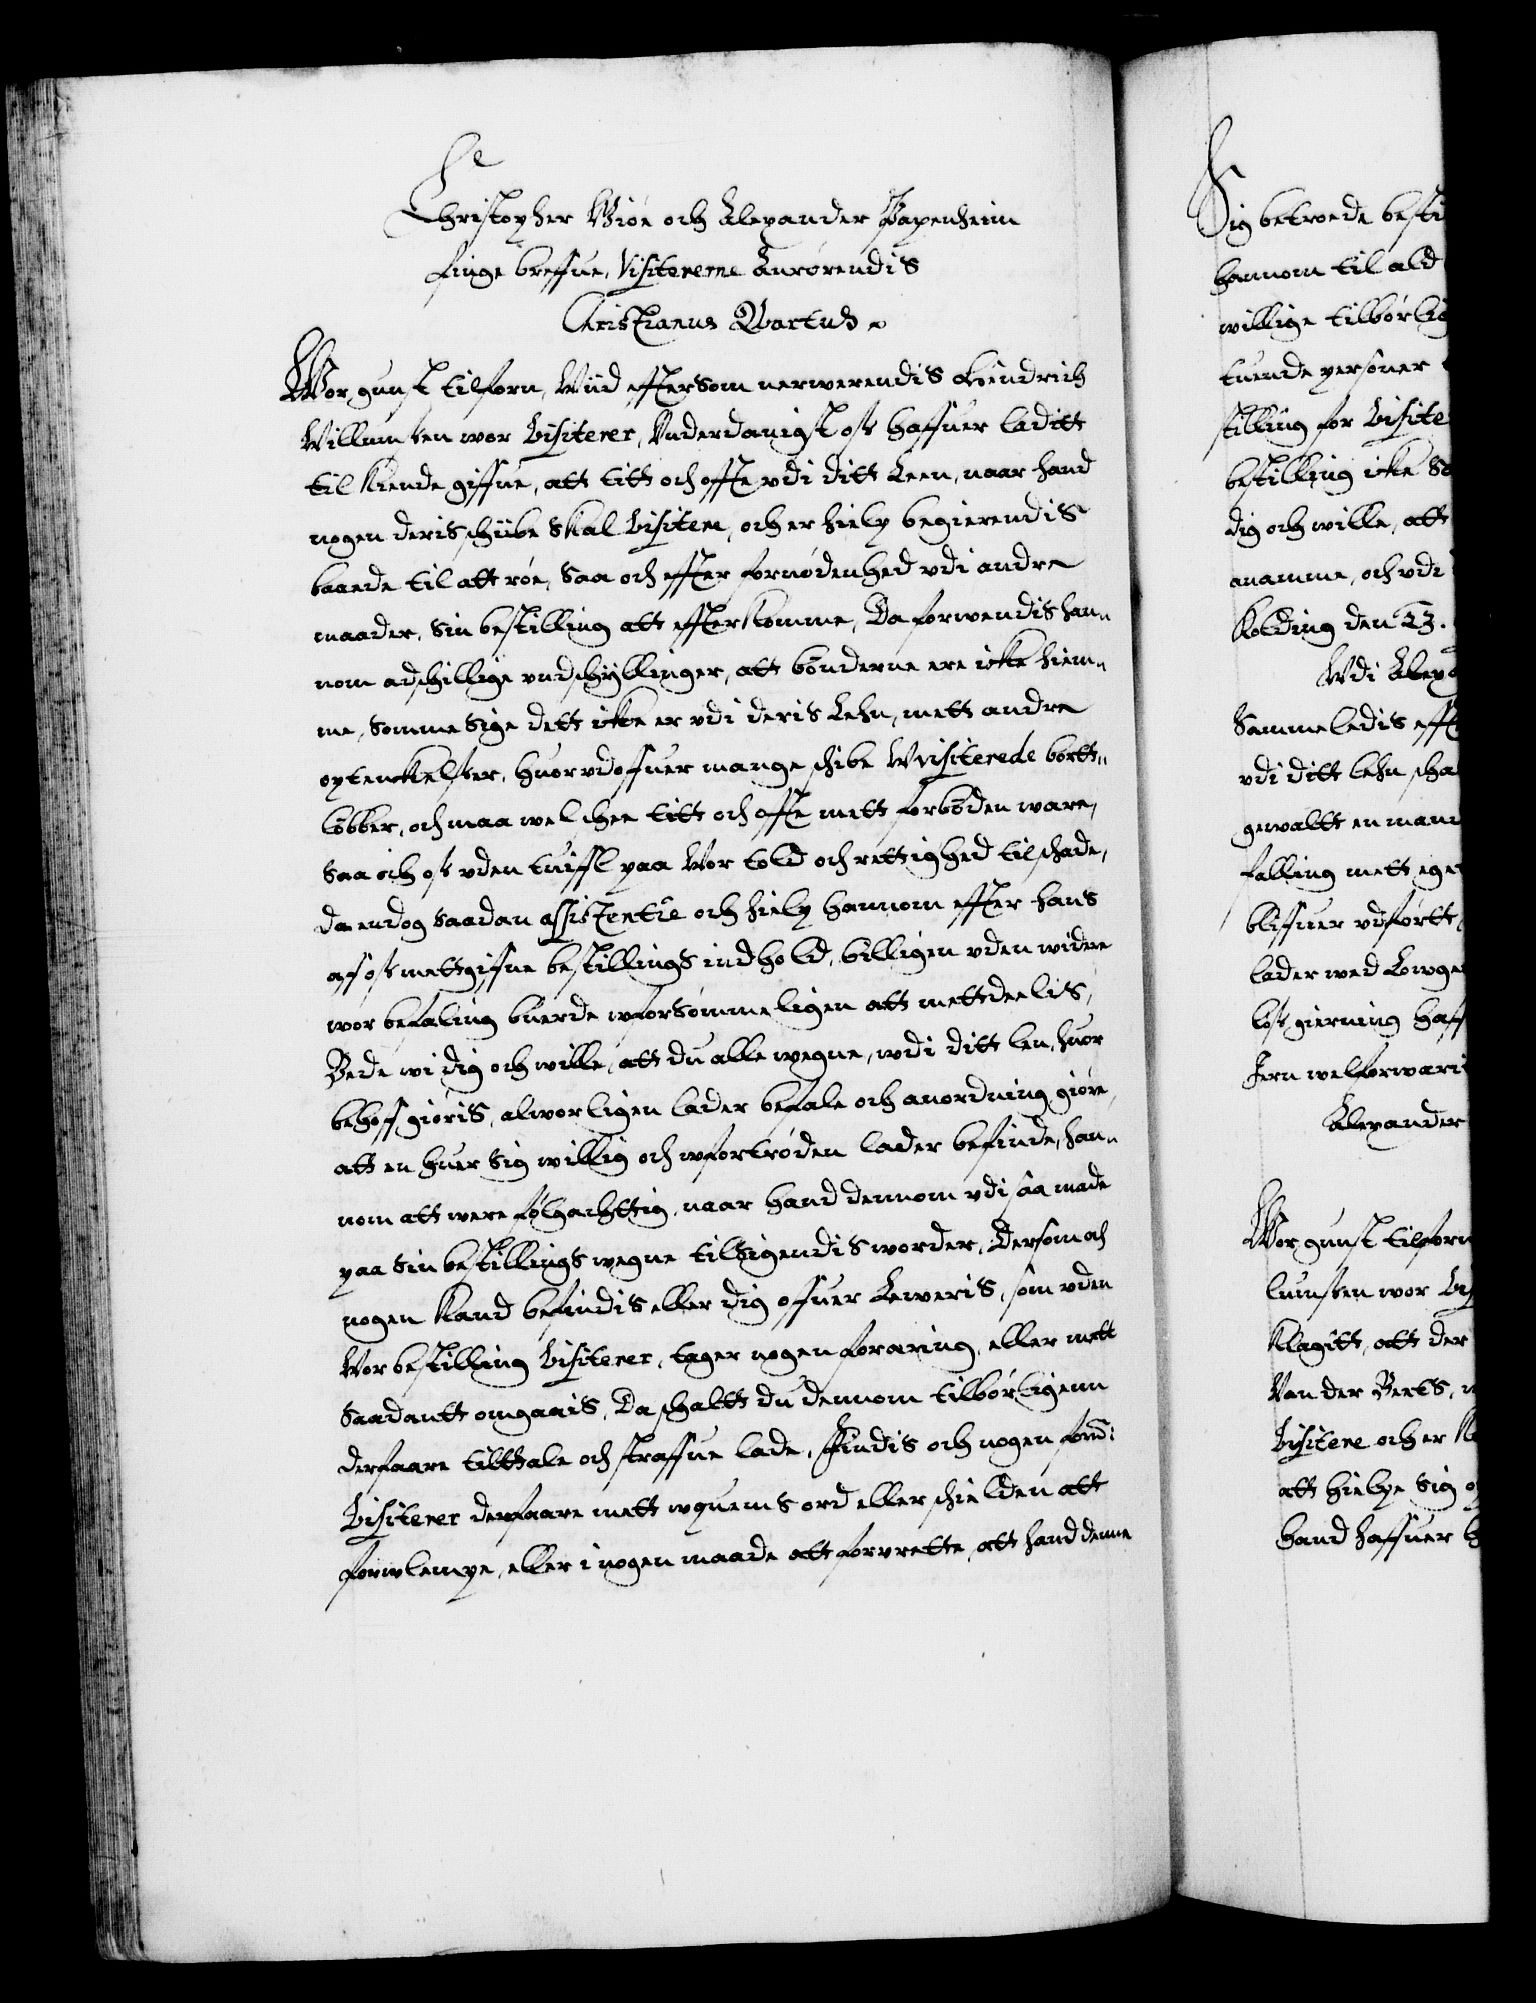 Christopher Giøe och Alexander Papenheim
finge breffue, Visitererne Anrørendis
Christianus Quartus
Wor gunst tilforn, Wiid effttersom nerwerendis Hendrich
Willumsen wor Visiterer, Vnderdanigst oss haffuer laditt
til kiende giffue, att titt och offte vdi ditt Leen, naar hand
nogen deris schibe skal Visitere, och er hielp begierendis
baade til att roe, saa och effter fornødenhed vdi andre
maader, sin bestilling att effterkomme, Da forwendis han„
nom adschillige vndschyllinger, att bønderne ere icke hiem„
me, somme sige dett icke er vdi deris Lehn, mett andre
optenckelser, huorvdoffuer mange schibe Wvisiterede bortt„
løbber, och maa wel schee titt och offte mett forboden ware,
saa och oss vden tuiffl paa Wor told och rettighed til schade,
da endog saadan assistentie och hielp hannom effter hans
aff oss mettgifne bestillings indhold, billigen vden widere
wor befaling buerde wforsømmeligen att mettdeelis,
Bede wi dig och wille, att du alle wegne, wdi ditt len, huor
behoff giøris, alworligen lader befale och anordning giøre,
att en huer sig willig och wfortrøden lader befinde, han„
nom att were følgachttig, naar hand dennom vdi saa made
paa sin bestillings wegne tilsigendis worder, Dersom och
nogen kand befindis eller dig offuer Leweris, som vden
Wor bestilling Visiterer, tager nogen foraring, eller mett
saadantt omgaais, Da schaltt du dennom tilbørligenn
derfaare tilttale och straffue lade, Findis och nogen ford:
Visiterer derfaare mett wquems ord eller schielden att
forvlempe, eller i nogen maade att forvrette, att hand denne
Sig betroede besti
hannom til ald
willige tilbørlig
tuende personer
stilling for Visite
bestilling icke sa
dig och wille, att
anamme, och vdi
Kolding den 23.
Wdi Alexa
Sammeledis efft
vdi ditt lehn scha
gewaltt en man
falling mett ege
bliffuer vdførtt,
lader wed Lowge
løss gierning haff
Jern welforwari
Alexander
Wor gunst tilforn
lumsen wor Vis
Klagitt, att der
Van der Berts,
Visitere och er
att hielpe sig
hand haffuer